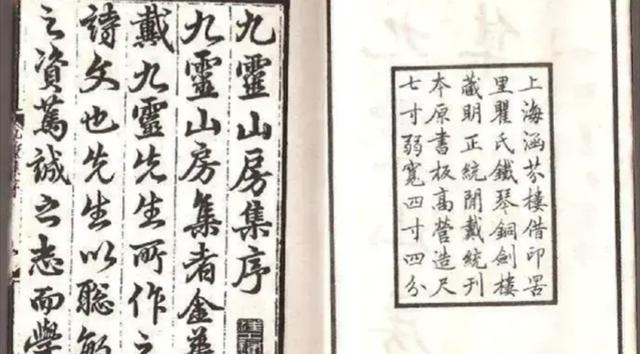 上海涵芬樓借印罟
里瞿氏鐵琴銅劍樓
藏明正統閒戴統刊
本原書板高營造尺
七寸弱寬四寸四分
九靈山房集序
九靈山房集者金華
戴九靈先生所作之
詩文也先生以聰敏
之資篤誠之志而學